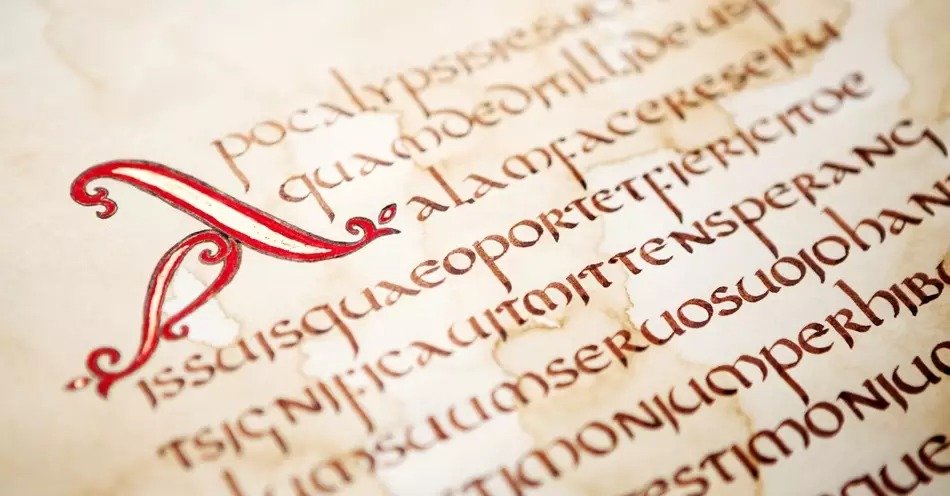 Apocalypsisiesu
quamdeditillideus
alamfacereseru
issuisquaeoportetfiericitoe
tsignificauitmittensperang
lumsuumseruosuoiohan
timoniumperhibu
estimoniu
que